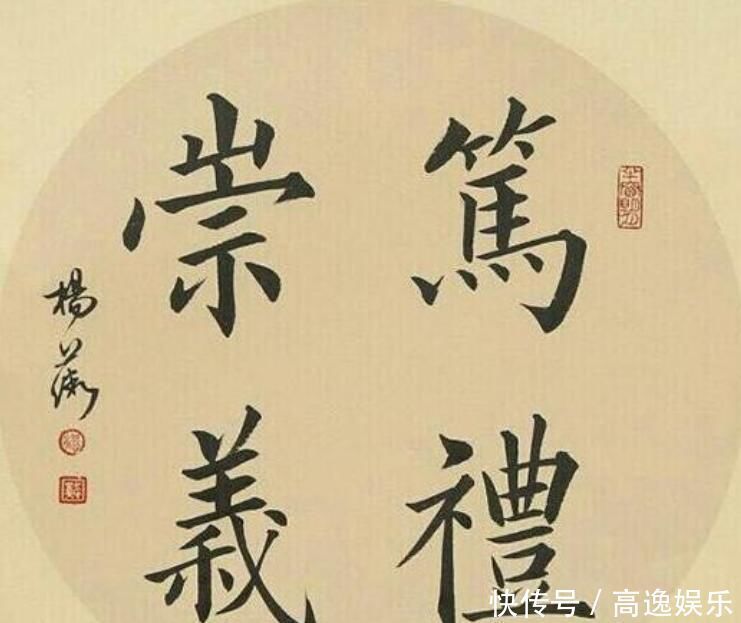 篤禮
崇義
楊
快传号/高逸娱乐